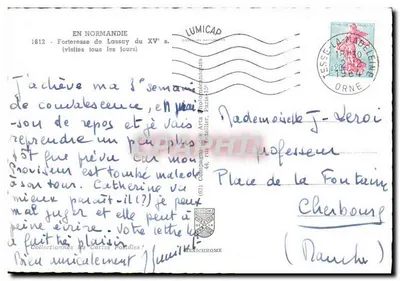 EN NORMANDIE
1812 - Forteresse de Lassay du XVe s.
(visites tous les jours)
LUMICAP
J'achève ma 3e semaine
de convalescence, en mai-
son de repos et je vais
reprendre un peu plus
tôt que prévu car mon
Proviseur est tombé malade
à son tour. Catherine va
mieux paraît-il (?) je peux
mal juger et elle peut à
peine écrire. Votre lettre lui
a fait plaisir.
Bien amicalement
Mademoiselle J. Leroi
Professeur
Place de la Fontaine
Cherbourg
(Manche)
LA MADELEINE
1964
ORNE